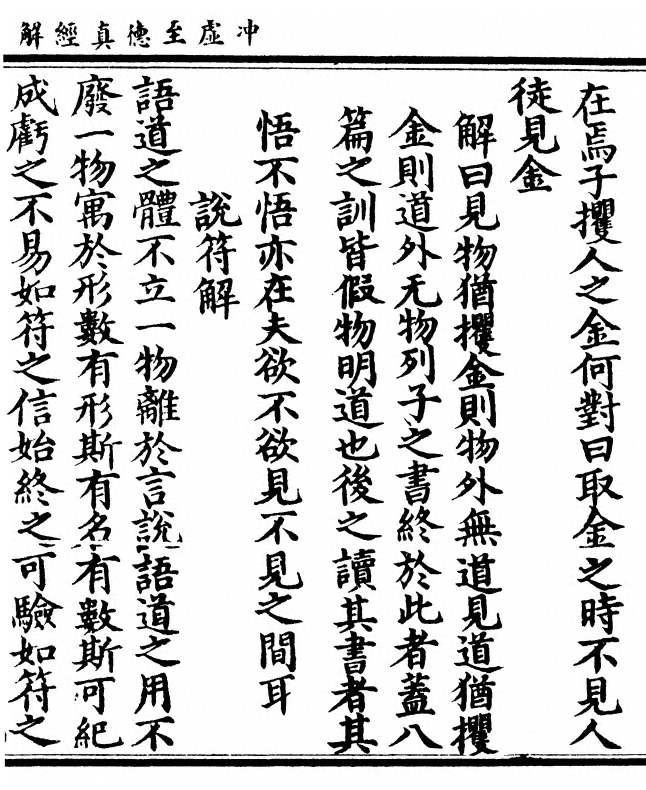 冲虛至德真經解
在焉子攫人之金何對曰取金之時不見人
徒見金
解曰見物猶攫金則物外無道見道猶攫
金則道外无物列子之書終於此者蓋八
篇之訓皆假物明道也後之讀其書者其
悟不悟亦在夫欲不欲見不見之間耳
說符解
語道之體不立一物離於言說語道之用不
廢一物寓於形數有形斯有名有數斯可紀
成虧之不易如符之信始終之可驗如符之